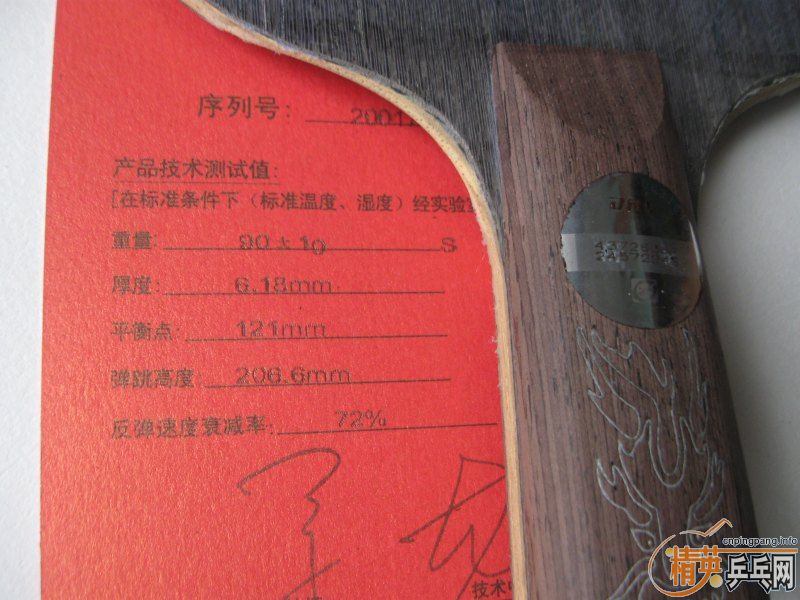 序列号: 2001
产品技术测试值:
[在标准条件下（标准温度、湿度）经实验
重量: 90±1g S
厚度: 6.18mm
平衡点: 121mm
弹跳高度: 206.6mm
反弹速度衰减率: 72%
技术
cnpingpang.info
精英乒乓网